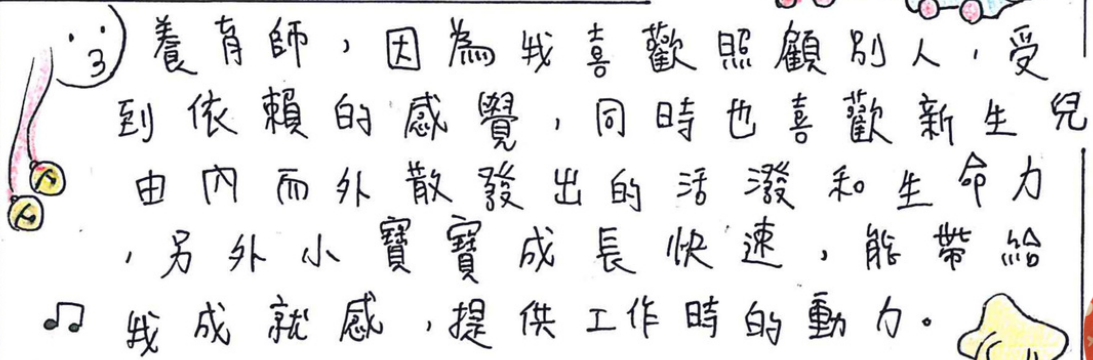 養育師，因為我喜歡照顧別人，受
到依賴的感覺，同時也喜歡新生兒
由內而外散發出的活潑和生命力
，另外小寶寶成長快速，能帶給
我成就感，提供工作時的動力。